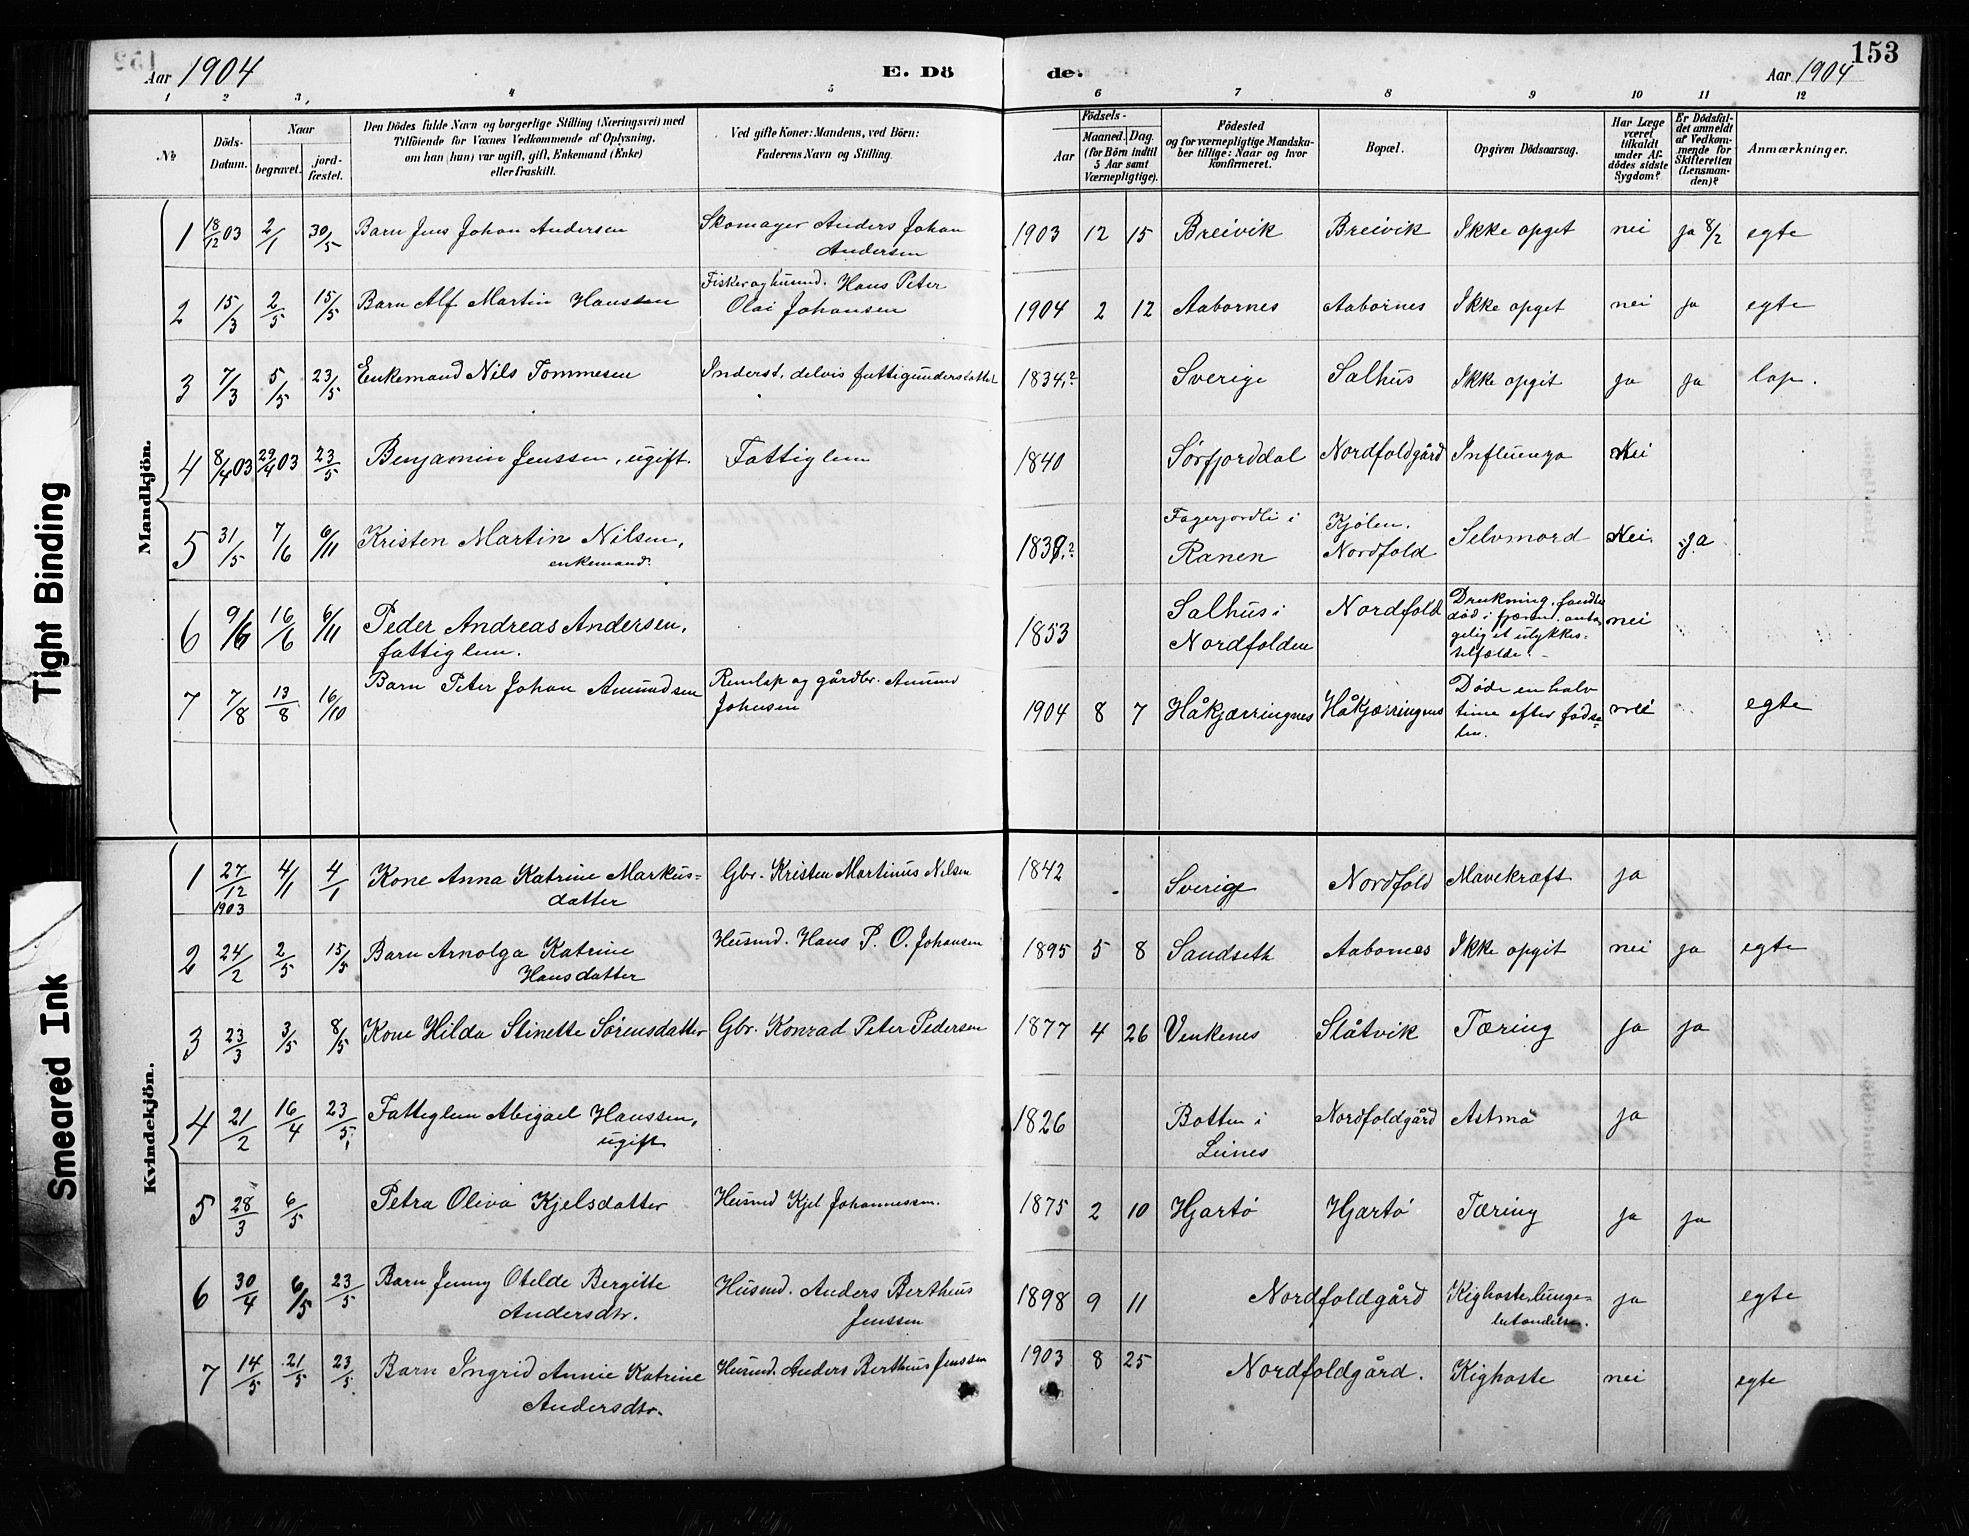 Aar 1904
E. Dö
de.
Aar 1904
153
1 2 3, 4 5 6 7 8 9 10 11 12
No
Döds-
Datum.
Naar
begravet.
jord-
fæstet.
Den Dödes fulde Navn og borgerlige Stilling (Næringsvei) med
Tilföiende for Voxnes Vedkommende af Oplysning,
om han (hun) var ugift, gift, Enkemand (Enke)
eller fraskilt.
Ved gifte Koner: Mandens, ved Börn:
Faderens Navn og Stilling.
Födsels-
Aar
Maaned.
Dag.
(for Börn indtil
5 Aar samt
Værnepligtige).
Födested
og for værnepligtige Mandska-
ber tillige: Naar og hvor
konfirmeret.
Bopæl.
Opgiven Dödsaarsag.
Har Læge
været
tilkaldt
under Af-
dödes sidste
Sygdom?
Er Dödsfal-
det anmeldt
af Vedkom-
mende for
Skifteretten
(Lensman-
den)?
Anmærkninger.
Mandkjön.
1 18/12 03 2/1 30/5 Barn Jens Johan Andersen Skomager Anders Johan
Andersen
1903 12 15 Breivik Breivik Ikke opget nei ja 8/2 egte
2 15/3 2/5 15/5 Barn Alf Martin Hanssen Fisker og husmd. Hans Peter
Olai Johansen
1904 2 12 Aabornes Aabornes Ikke opget nei ja egte
3 7/3 5/5 23/5 Enkemand Nils Tommesen Inderst, delvis fattigunderstøttet
1834,? Sverige Salhus Ikke opgit ja ja lap.
4 8/4 03 29/4 03 23/5 Benjamin Jenssen, ugift. Fattiglem
1840 Sørfjorddal Nordfoldgård Influenza Nei
5 31/5 7/6 6/11 Kristen Martin Nilsen,
enkemand.
1839,? Fagerjordli i
Ranen
Kjølen,
Nordfold
Selvmord Nei ja
6 9/6 16/6 6/11 Peder Andreas Andersen,
fattiglem.
1853 Salhus i
Nordfolden
Nordfold
Drukning, fandtes
død i fjæren, anta-
gelig et ulykkes-
tilfælde.
nei
7 7/8 13/8 16/10 Barn Peter Johan Amundsen Remlap og gårdbr. Amund
Johnsen
1904 8 7 Håkjærringnes Håkjærringnes Døde en halv
time efter fødse-
len.
nei egte
Kvindekjön.
1 27/12 1903 4/1 4/1 Kone Anna Katrine Markus-
datter
Gbr. Kristen Martinus Nilsen
1842 Sverige Nordfold Mavekræft ja
2 24/2 2/5 15/5 Barn Arnolga Katrine
Hansdatter
Husmd. Hans P. O. Johansen
1895 5 8 Sandseth Aabornes Ikke opgit nei ja egte
3 23/3 3/5 8/5 Kone Hilda Stinette Sørensdatter Gbr. Konrad Peter Pedersen
1877 4 26 Venkenes Slåtvik Tæring ja ja
4 21/2 16/4 23/5 Fattiglem Abigael Hanssen,
ugift
1826 Botten i
Leines
Nordfoldgård Astma ja
5 28/3 6/5 Petra Oliva Kjelsdatter Husmd Kjel Johannessen.
1875 2 10 Hjartø Hjartø Tæring ja ja
6 30/4 6/5 23/5 Barn Jenny Otelde Bergitte
Andersdtr.
Husmd. Anders Berthus
Jenssen
1898 9 11 Nordfoldgård Kighoste, lunge-
betændelse.
ja egte
7 14/5 21/5 23/5 Barn Ingrid Annie Katrine
Andersdtr.
Husmd. Anders Berthus Jenssen
1903 8 25 Nordfoldgård. Kighoste nei egte
Tight Binding
Smeared Ink